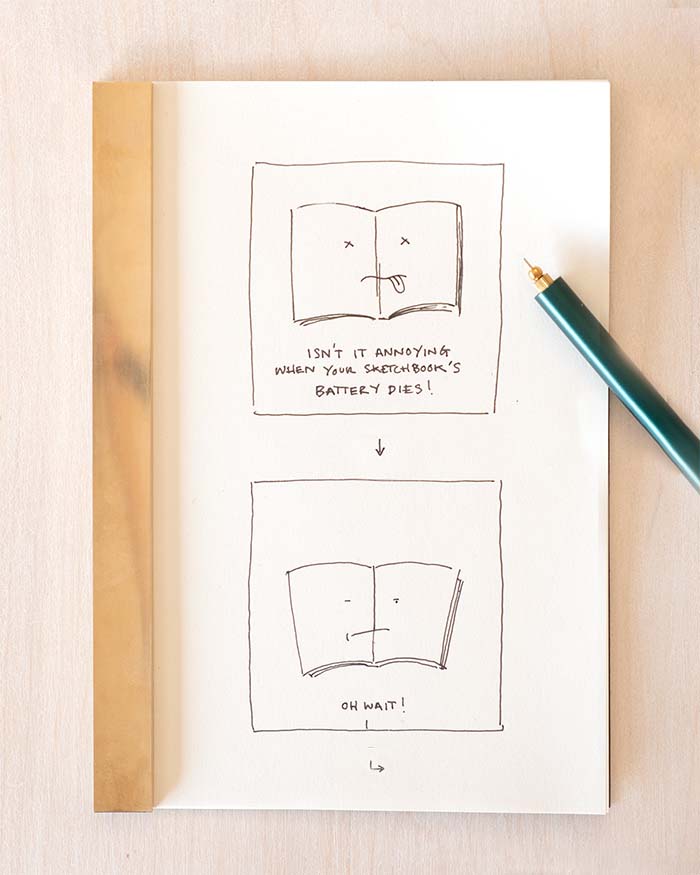 ISN'T IT ANNOYING
WHEN YOUR SKETCHBOOK'S
BATTERY DIES!
OH WAIT!